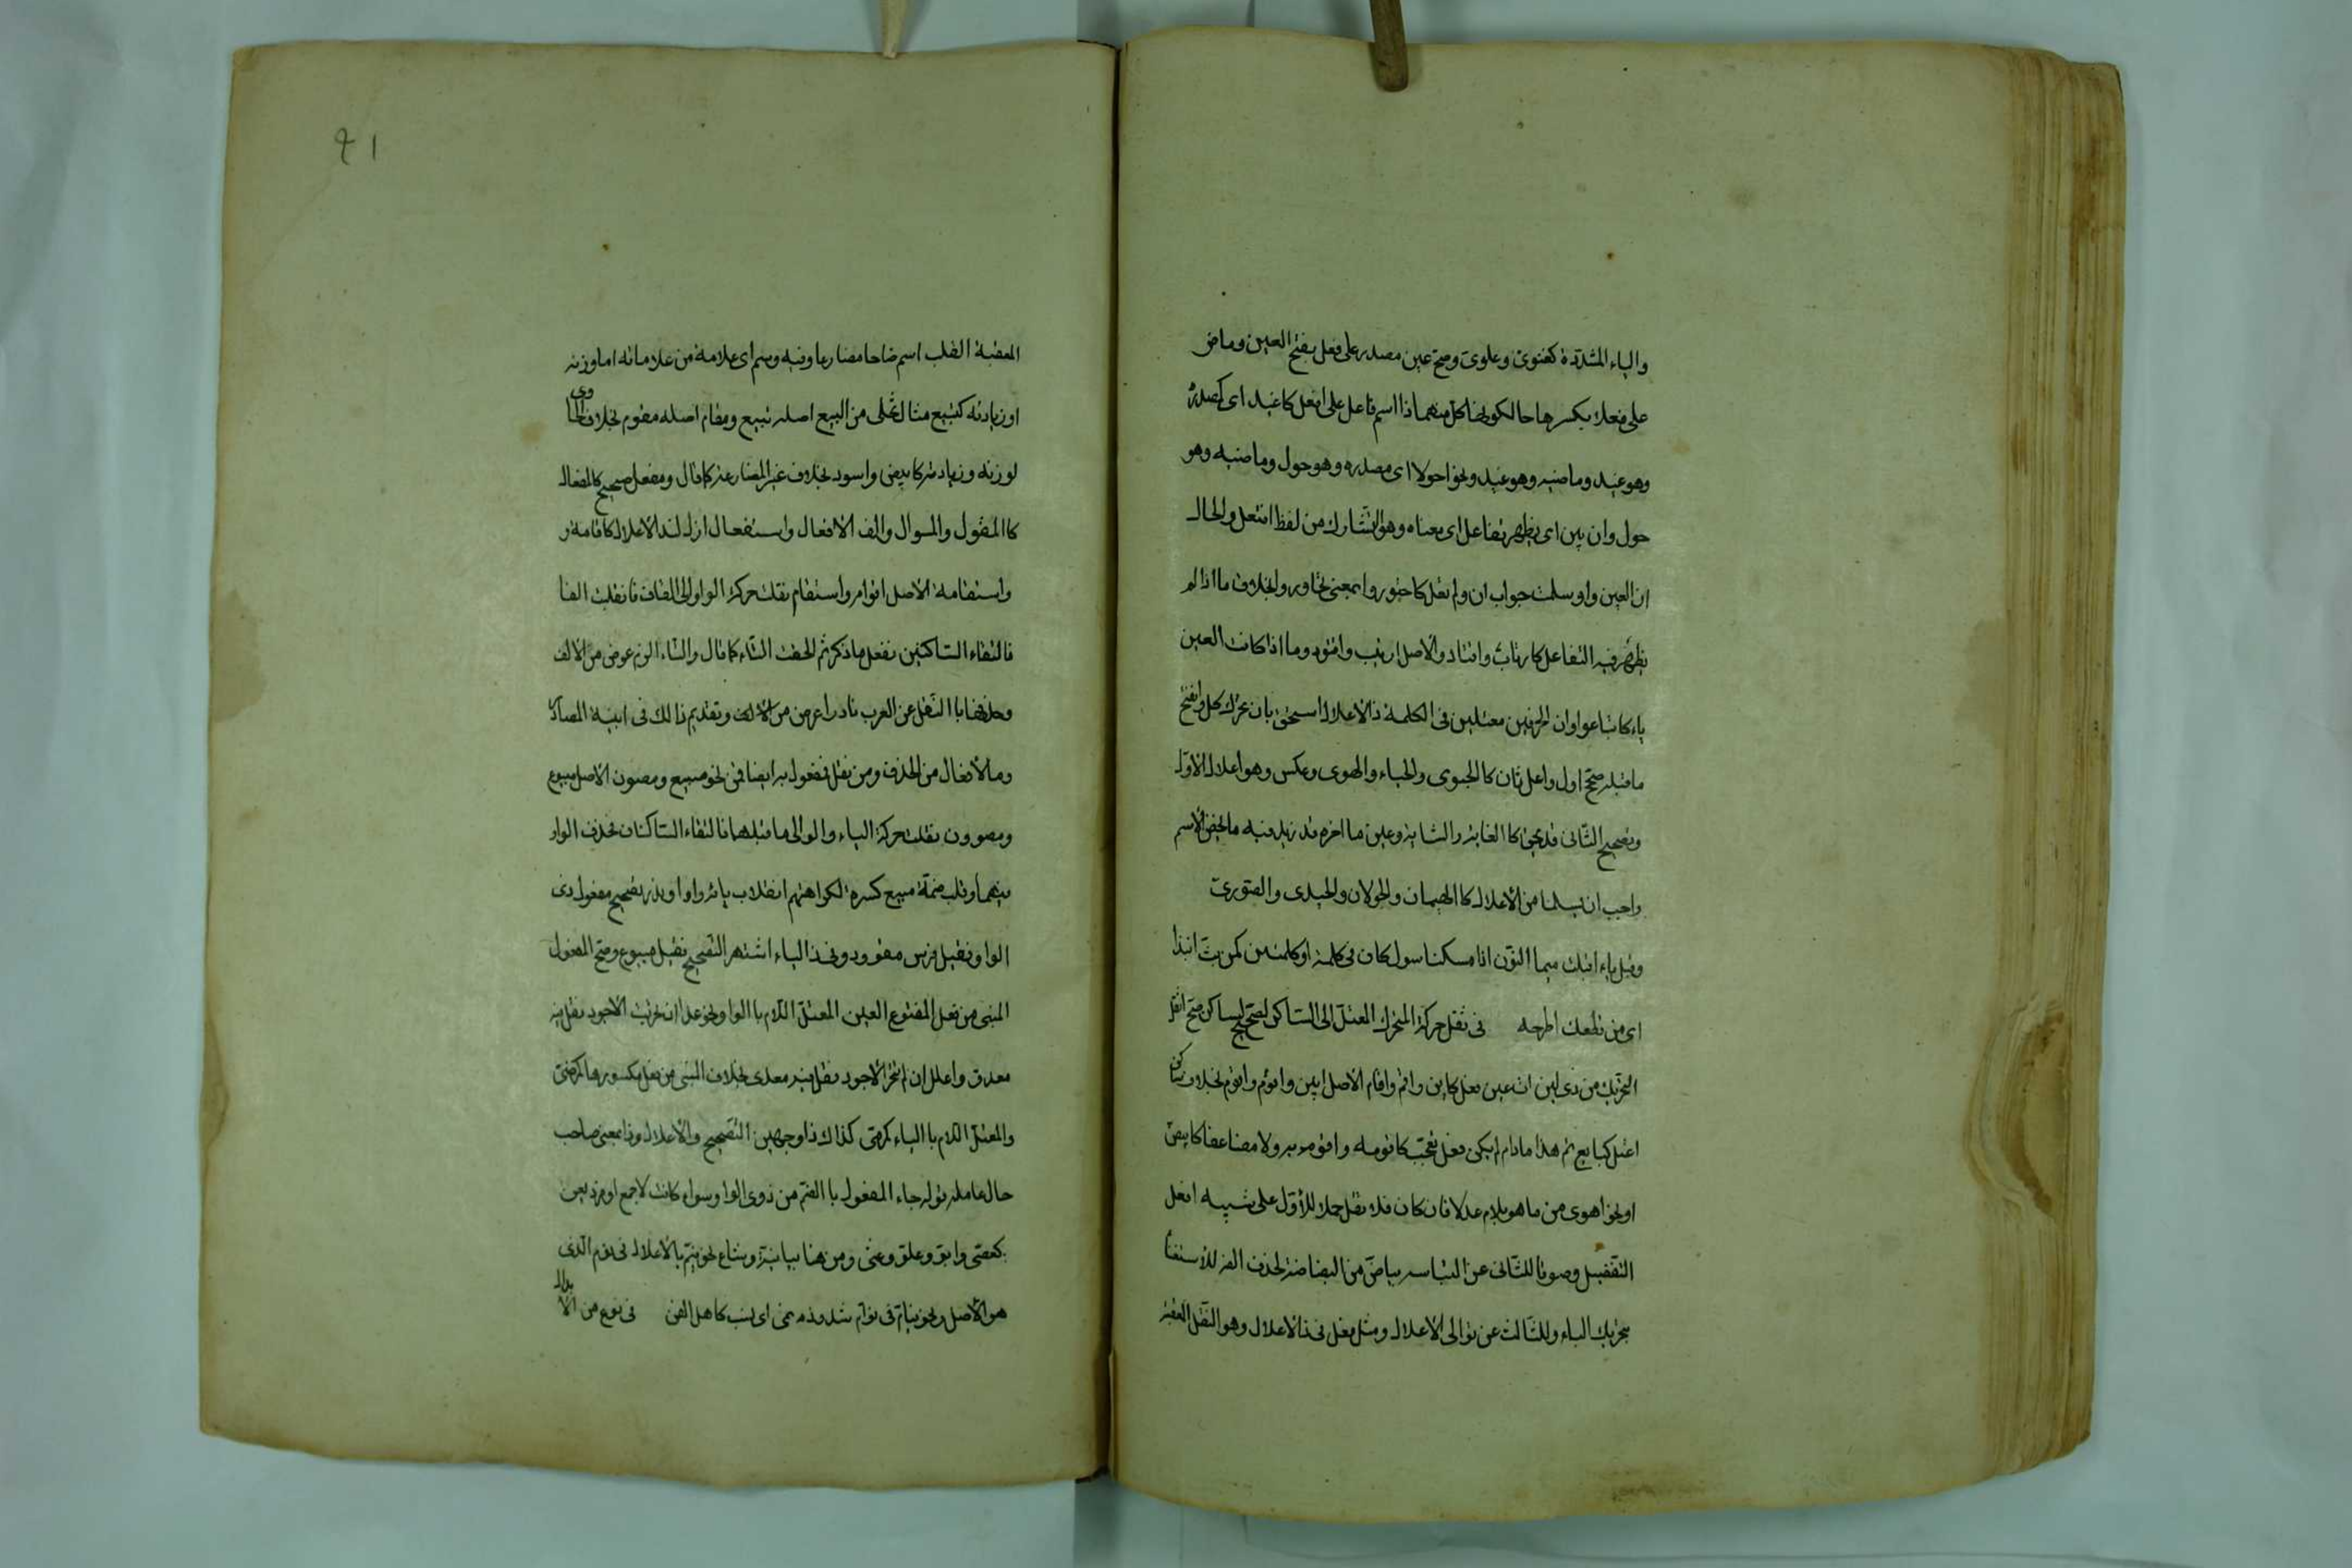 والياء المشددة كغنوى وعلوى وصح عين مصدر على فعل بفتح العين وماض
على فعلا بكسرها حالكونها كل منهما ذا اسم فاعل على افعل كاغيد اى كمصدر
وهو غيد وماضيه وهو غيد ونحو احولا اى مصدره وهو حول وماضيه وهو
حول وان يبن اى يظهر تفاعل اى معناه وهو التشارك من لفظ افتعل والحال
ان العين واو سلمت جواب ان ولم تعل كاجتوروا بمعنى تجاوروا بخلاف ما اذا لم
يظهر فيه التفاعل كارتاب واقتاد والاصل ارتيب واقتود وما اذا كانت العين
ياء كابتاعوا وان لحرفين معتلين فى الكلمة ذا الاعلال استحق بان تحرك كل وانفتح
ما قبله صح اول واعل ثان كالحيوى والحياء والهوى وعكس وهو اعلال الاول
وتصحيح الثانى قد يحق كا الغاية والثاية وعين ما اخره قد زيد فيه ما يخص الاسم
واجب ان يسلما من الاعلال كا الهيمان والجولان والحيدى والصورى
وقبل باء اقلب ميما النون اذا مسكنا سواء كان فى كلمة او كلمتين كمن بت انبذا
اى من قطعك اطرحه فى نقل حركة المتحرك المعتل الى الساكن الصحيح لساكن صح انقل
التحريك من ذى لين ات عين فعل كابن واقم واقام الاصل ابين واقوم واقوم بخلاف ساكن
اعتل كبايع ثم هذا مادام لم يكن فعل تعجب كاقومه واقوم به ولا مضاعفا كابيض
او نحو اهوى من ما هو بلام عللا فان كان فلا نقل حملا للاول على شبيه افعل
التفضيل وصونا للثانى عن التباسه بباض من البضاضة لحذف الفه للاستغنا
بتحريك الباء وللثالث عن توالى الاعلال ومثل فعل فى ذا الاعلال وهو النقل المعقبة
٤١
المعقبة القلب اسم ضاها مضارعا وفيه وسم اى علامة من علاماته اما وزنه
او زيادته كتبيع مثال تحلى من البيع اصله تبيع ومقام اصله مقوم بخلاف المساوى
لوزنه وزيادته كابيض واسود بخلاف غير المضارعة كاقال ومفعل صحيح كالمفعال
كا المقول والمسوال والف الافعال واستفعال ازل لذا الاعلال كاقامة و
واستقامة الاصل اقوام واستقوام نقلت حركة الواو الى القاف فانقلبت الفا
فالتقاء الساكنين ففعل ما ذكر ثم الحقت التاء كما قال والتاء الزم عوض من الالف
وحذفها با النقل عن العرب نادرا عرض من الالف وتقديم ذالك فى ابنية المصادر
وما لافعال من الحذف ومن نقل فمفعول به ايضا قمن نحو مبيع ومصون الاصل مبيوع
ومصوون نقلت حركة الياء والواو الى ما قبلهما فالتقاء الساكنان فحذف الواو
منهما وقلب ضمة مبيع كسرة لكراهتهم انقلاب يائه واوا وندر تصحيح مفعول ذى
الواو فقيل فرس مقوود وفى ذا الياء اشتهر التصحيح فقيل مبيوع وصحح المفعول
المبنى من فعل المفتوع العين المعتل اللام با الواو نحو عدا ان تحريت الاجود فقل فيه
معدو واعلل ان لم تتحر الاجود فقل فيه معدى بخلاف المبنى من فعل مكسورها كرضى
والمعتل اللام با الياء كرمى كذاك ذا وجهين التصحيح والاعلال وذا بمعنى صاحب
حال عامله قوله جاء المفعول با الضم من ذوى الواو سواء كانت لام جمع او فرد يعن
كعصى وابو وعلو وعتى ومن هنا بيانية وشاع نحو نيم بالاعلال فى نوم الذى
هو الاصل ونحو نيام فى نوام شذوذه نمى اى نسب كاهل الفن فى نوع من الابدال